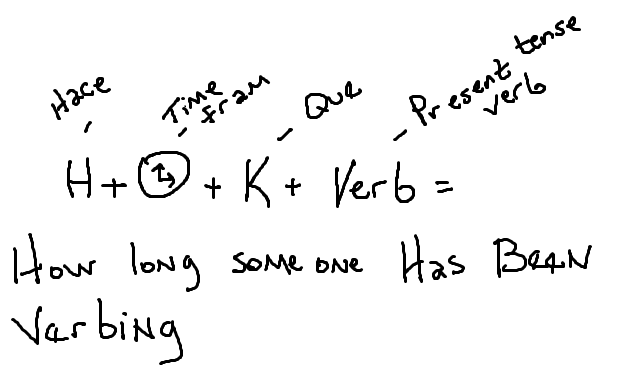 Hace
Time
fram
Que
Present tense
verb
H + + K + Verb =
How long someone Has Been
Verbing